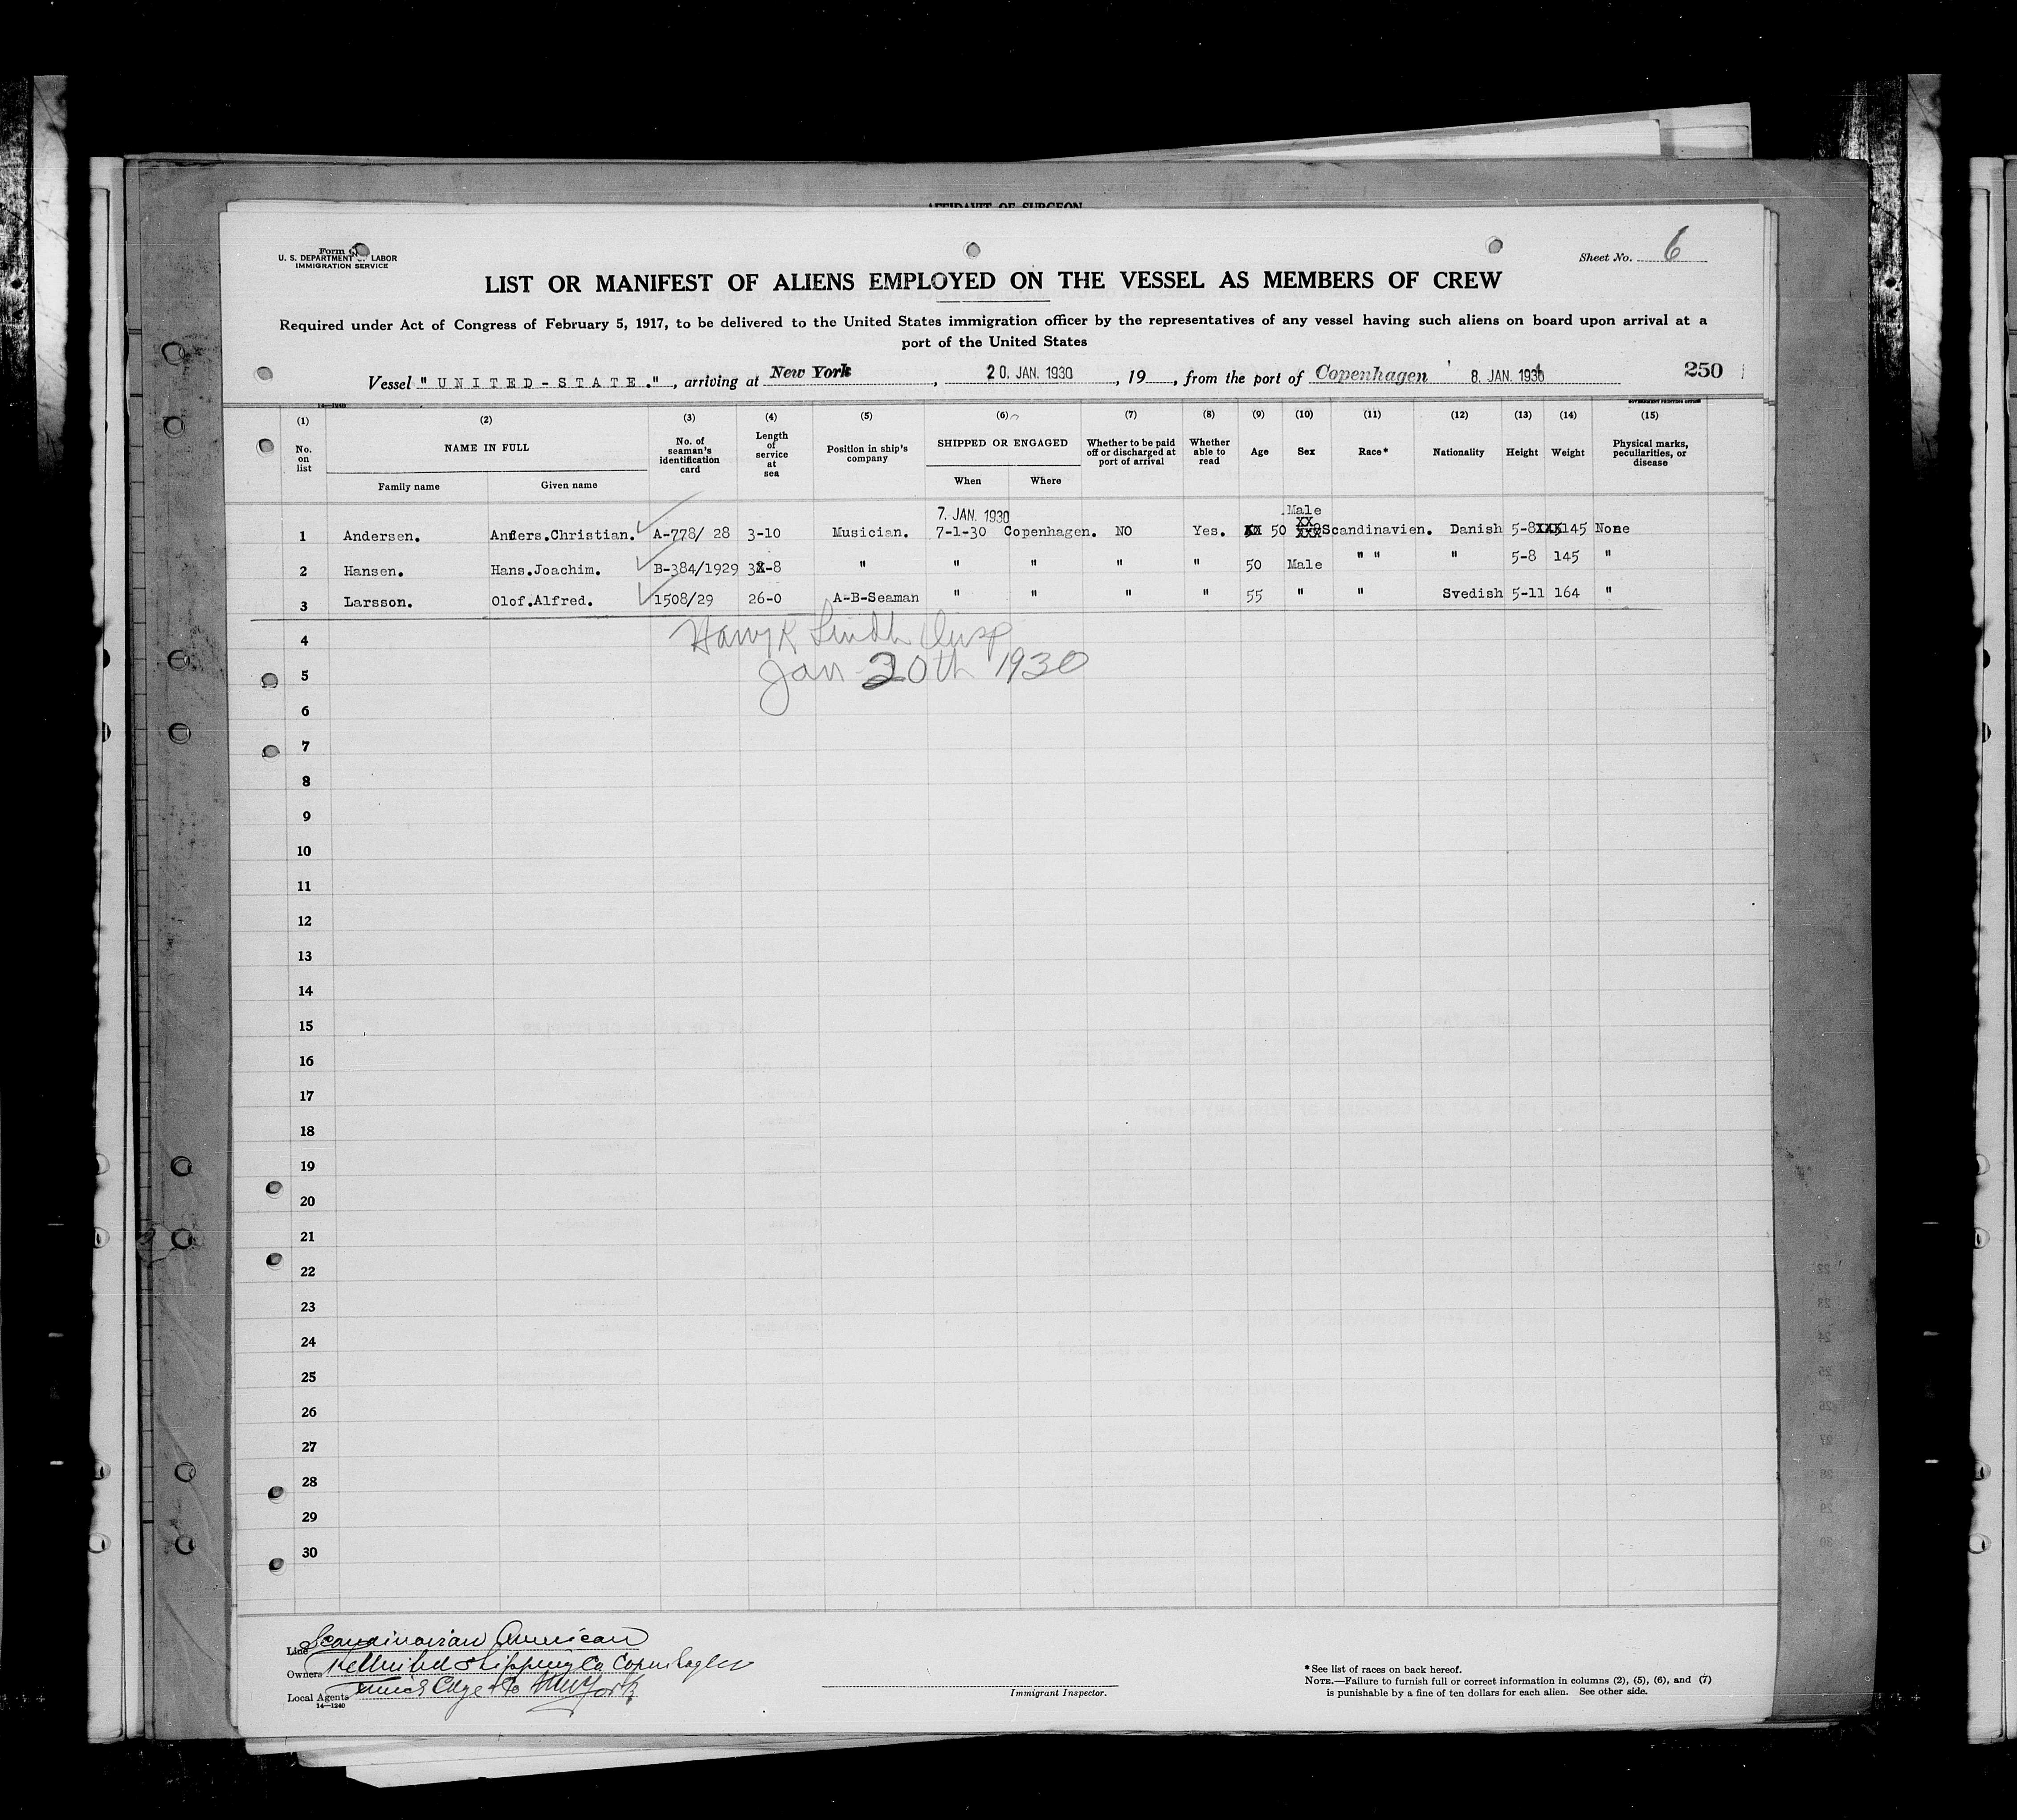 AFFIDAVIT OF SURGEON
Form
U. S. DEPARTMENT OF LABOR
IMMIGRATION SERVICE
Sheet No. 6
LIST OR MANIFEST OF ALIENS EMPLOYED ON THE VESSEL AS MEMBERS OF CREW
Required under Act of Congress of February 5, 1917, to be delivered to the United States immigration officer by the representatives of any vessel having such aliens on board upon arrival at a
port of the United States
Vessel "UNITED-STATE.", arriving at New York, 20. JAN. 1930, 19, from the port of Copenhagen 8. JAN. 1930 250
14—1240 GOVERNMENT PRINTING OFFICE
(1) (2) (3) (4) (5) (6) (7) (8) (9) (10) (11) (12) (13) (14) (15)
No. on list NAME IN FULL No. of seaman's identification card Length of service at sea Position in ship's company SHIPPED OR ENGAGED Whether to be paid off or discharged at port of arrival Whether able to read Age Sex Race* Nationality Height Weight Physical marks, peculiarities, or disease
Family name Given name When Where
7. JAN. 1930 Male
1 Andersen. Anders.Christian. A-778/ 28 3-10 Musician. 7-1-30 Copenhagen. NO Yes. XX 50 XXX Scandinavien. Danish 5-8XXX145 None
2 Hansen. Hans.Joachim. B-384/1929 3X-8 " " " " " 50 Male " " " 5-8 145 "
3 Larsson. Olof.Alfred. 1508/29 26-0 A-B-Seaman " " " " 55 " " Svedish 5-11 164 "
4 Harry K Lindh Insp
5 Jan 20th 1930
6
7
8
9
10
11
12
13
14
15
16
17
18
19
20
21
22
23
24
25
26
27
28
29
30
Line Scandinavian American
Owners The United Shipping Co Copenhagen
Local Agents Edye & Co New York
14—1240
Immigrant Inspector.
*See list of races on back hereof.
NOTE.—Failure to furnish full or correct information in columns (2), (5), (6), and (7)
is punishable by a fine of ten dollars for each alien. See other side.